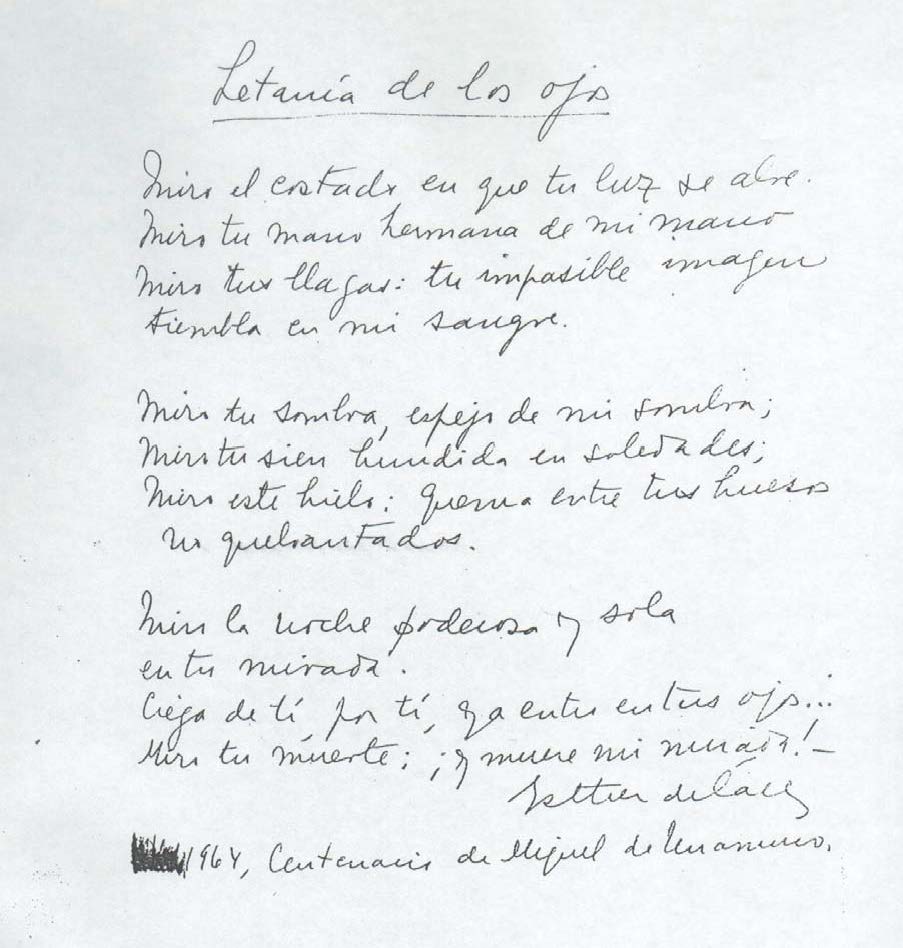 Letanía de los ojos
Miro el costado en que tu luz se abre.
Miro tu mano hermana de mi mano
Miro tus llagas: tu impasible imagen
tiembla en mi sangre.
Miro tu sombra, espejo de mi sombra;
Miro tu sien hundida en soledades;
Miro este hielo: quema entre tus huesos
no quebrantados.
Miro la noche poderosa y sola
en tu mirada.
Ciega de tí, por tí, ya entro en tus ojos...
Miro tu muerte; ¡y muere mi mirada!—
Esther de Cáceres
1964, Centenario de Miguel de Unamuno.